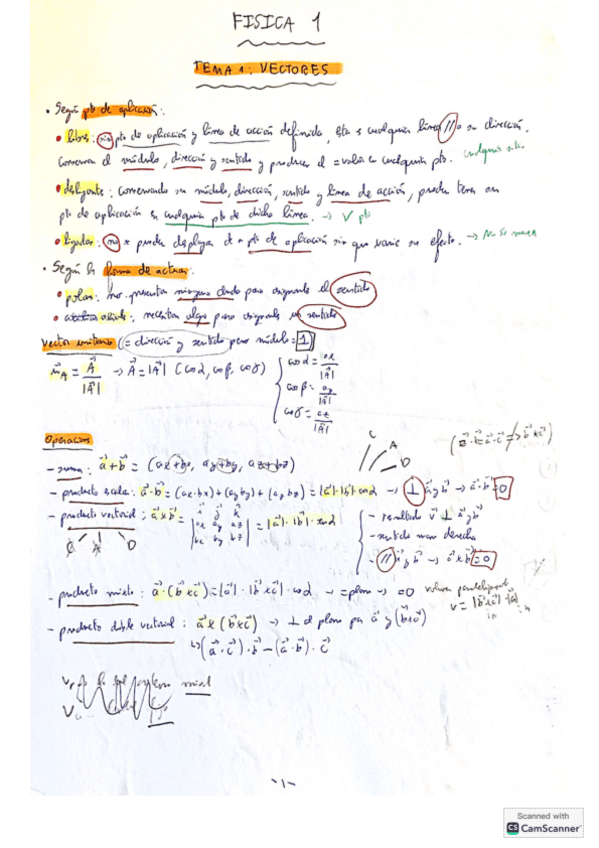 FISICA 1
TEMA 1: VECTORES
• Según pto de aplicación:
• libres: sin pto de aplicación y línea de acción definida, esta es cualquier línea // a su dirección.
Conservan el módulo, dirección y sentido y producen el = valor en cualquier pto. cualquier sitio
• deslizantes: conservando su módulo, dirección, sentido y línea de acción, pueden tener su
pto de aplicación en cualquier pto de dicha línea. → V pto
• ligados: no se pueden desplazar de su pto de aplicación sin que varíe su efecto. → No se mueven
• Según la forma de actuar:
• polar: no presentan ninguna duda para asignarle el sentido
• axial: necesitan algo para asignarle un sentido
Vector unitario (= dirección y sentido pero módulo = 1)
u⃗A = A⃗ / |A⃗| → A⃗ = |A⃗| (cosα, cosβ, cosγ)
cosα = ax / |A⃗|
cosβ = ay / |A⃗|
cosγ = az / |A⃗|
Operaciones
C A D
- suma: a⃗ + b⃗ = (ax+bx, ay+by, az+bz)
- producto escalar: a⃗·b⃗ = (ax·bx)+(ay by)+(az bz) = |a⃗|·|b⃗|·cosα → ⊥ a⃗ y b⃗ → a⃗·b⃗ = 0
- producto vectorial: a⃗xb⃗ = | i⃗ j⃗ k⃗ | ax ay az | bx by bz | = |a⃗|·|b⃗|·senα
- resultado v⃗ ⊥ a⃗ y b⃗
- sentido mano derecha
- // a⃗ y b⃗ → a⃗xb⃗ = 0
C A D
- producto mixto: a⃗·(b⃗xc⃗) = |a⃗|·|b⃗xc⃗|·cosα → = plano → = 0
V = |b⃗xc⃗|·|a⃗|
- producto doble vectorial: a⃗x(b⃗xc⃗) → ⊥ al plano por a⃗ y (b⃗xc⃗)
↳ (a⃗·c⃗)·b⃗ - (a⃗·b⃗)·c⃗
-1-
Scanned with
CS CamScanner